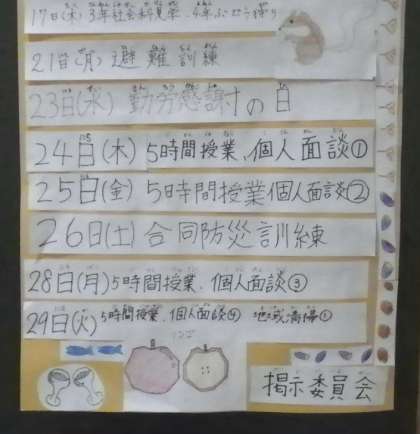 17日(木) 3年社会科見学
21日(月) 避難訓練
23日(水) 勤労感謝の日
24日(木) 5時間授業、個人面談①
25日(金) 5時間授業個人面談②
26日(土) 合同防災訓練
28日(月) 5時間授業、個人面談③
29日(火) 5時間授業、個人面談④ 地域清掃①
掲示委員会